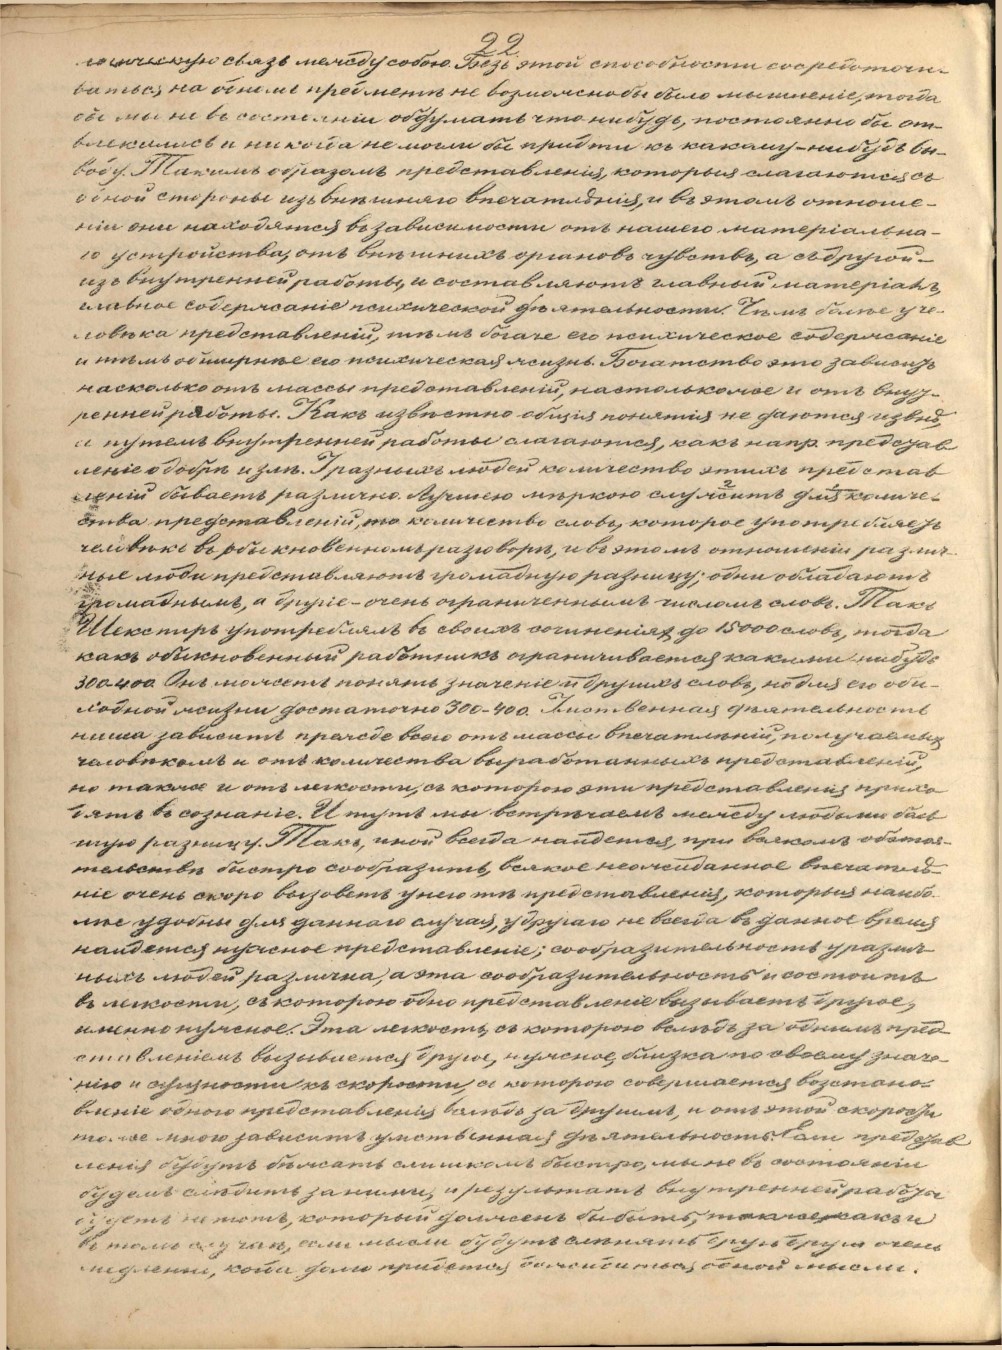 22
логическую связь между собою. Безъ этой способности сосредоточи-
ваться на одномъ предметѣ не возможно бы было мышленіе, тогда
бы мы не въ состояніи обдумать что нибудь, постоянно бы от-
влекались и никогда не могли бы придти къ какому-нибудь вы-
воду. Такимъ образомъ представленія, которыя слагаются съ
одной стороны изъ внѣшняго впечатлѣнія, и въ этомъ отноше-
ніи они находятся въ зависимости отъ нашего матеріально-
го устройства, отъ внѣшнихъ органовъ чувствъ, а съ другой-
изъ внутренней работы, и составляютъ главный матеріалъ,
главное содержаніе психической дѣятельности. Чѣмъ болѣе у че-
ловѣка представленій, тѣмъ богаче его психическое содержаніе
и тѣмъ обширнѣе его психическая жизнь. Богатство это зависитъ
насколько отъ массы представленій, настолько же и отъ внут-
ренней работы. Какъ извѣстно общія понятія не даются извнѣ,
а путемъ внутренней работы слагаются, какъ напр. представ
леніе о добрѣ и злѣ. У разныхъ людей количество этихъ представ
леній бываетъ различно. Лучшею мѣркою служитъ для количе-
ства представленій, то количество словъ, которое употребляетъ
человѣкъ въ обыкновенномъ разговорѣ, и въ этомъ отношеніи различ-
ные люди представляютъ громадную разницу; одни обладаютъ
громаднымъ, а другіе - очень ограниченнымъ числомъ словъ. Такъ
Шекспиръ употреблялъ въ своихъ сочиненіяхъ до 15000 словъ, тогда
какъ обыкновенный работникъ ограничивается какими нибудь
300-400. Онъ можетъ понять значеніе и другихъ словъ, но для его оби-
ходной жизни достаточно 300-400. Умственная дѣятельность
наша зависитъ прежде всего отъ массы впечатлѣній, получаемыхъ
человѣкомъ и отъ количества выработанныхъ представленій,
но также и отъ легкости, съ которою эти представленія прихо
дятъ въ сознаніе. И тутъ мы встрѣчаемъ между людьми боль
шую разницу. Такъ, иной всегда найдется, при всякомъ обстоя-
тельствѣ быстро сообразитъ, всякое неожиданное впечатлѣ-
ніе очень скоро вызоветъ у него тѣ представленія, которыя наибо-
лѣе удобны для даннаго случая, у другаго не всегда въ данное время
найдется нужное представленіе; сообразительность у различ
ныхъ людей различна, а эта сообразительность и состоитъ
въ легкости, съ которою одно представленіе вызываетъ другое,
именно нужное. Эта легкость, съ которою вслѣдъ за однимъ пред-
ставленіемъ вызывается другое, нужное, близка по своему значе-
нію и сущности къ скорости, съ которою совершается возстано-
вленіе одного представленія вслѣдъ за другимъ, и отъ этой скорости
тоже много зависитъ умственная дѣятельность. Если представ
ленія будутъ бѣжать слишкомъ быстро, мы не въ состояніи
будемъ слѣдить за ними, и результатъ внутренней работы
будетъ не тотъ, который долженъ бы быть, также какъ и
въ томъ случаѣ, если мысли будутъ смѣнять другъ друга очень
медленно, когда долго придется дожидаться одной мысли.